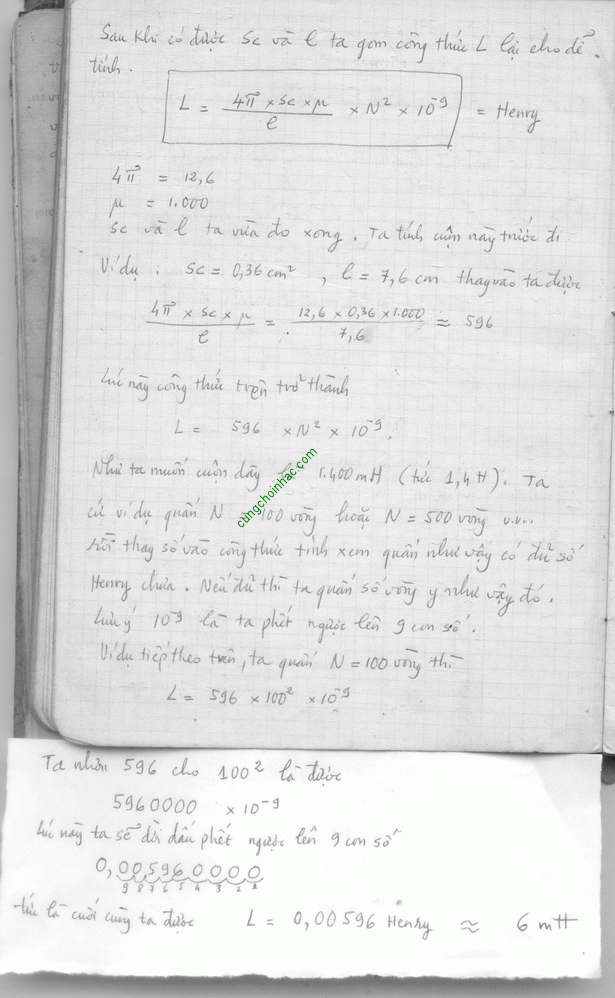 Sau khi có được Sc và l ta gom công thức L lại cho dễ
tính.
L = 4π × Sc × μ / l × N² × 10⁻⁹ = Henry
4π = 12,6
μ = 1.000
Sc và l ta vừa đo xong. Ta tính cụm này trước đi
Ví dụ : Sc = 0,36 cm² , l = 7,6 cm thay vào ta được
4π × Sc × μ / l = 12,6 × 0,36 × 1.000 / 7,6 ≈ 596
Lúc này công thức trên trở thành
L = 596 × N² × 10⁻⁹.
Như ta muốn cuộn dây 1.400 mH (tức 1,4 H). Ta
cứ ví dụ quấn N = 100 vòng hoặc N = 500 vòng v.v...
rồi thay số vào công thức tính xem quấn như vậy có đủ số
Henry chưa. Nếu đủ thì ta quấn số vòng y như vậy đó.
Lưu ý 10⁻⁹ là ta phết ngược lên 9 con số.
Ví dụ tiếp theo trên, ta quấn N = 100 vòng thì
L = 596 × 100² × 10⁻⁹
cungchoinhac.com
Ta nhân 596 cho 100² là được
5960000 × 10⁻⁹
Lúc này ta sẽ dời dấu phết ngược lên 9 con số
0,005960000
9 8 7 6 5 4 3 2 1
tức là cuối cùng ta được L = 0,00596 Henry ≈ 6 mH